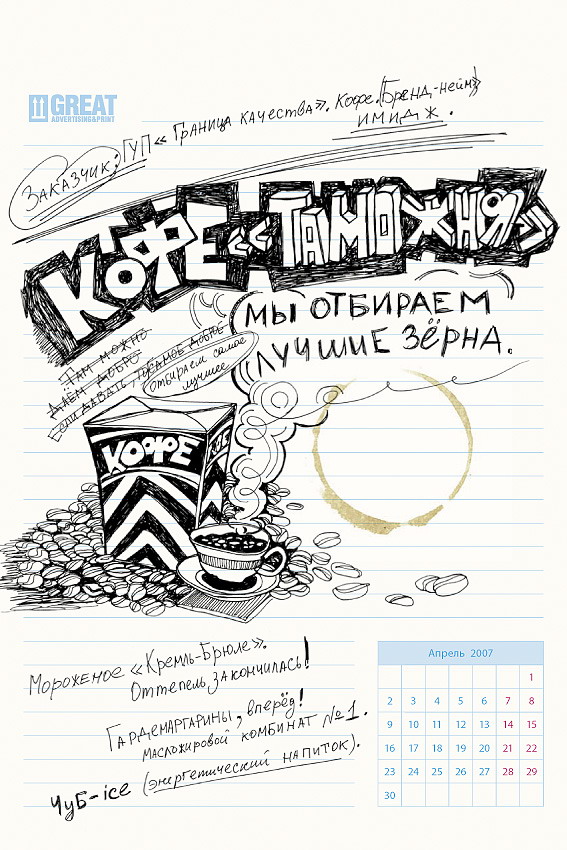 GREAT
ADVERTISING&PRINT
Заказчик: ГУП «Граница качества». Кофе. (Бренд-нейм)
имидж.
КОФЕ «ТАМОЖНЯ»
«МЫ ОТБИРАЕМ
ЛУЧШИЕ ЗЁРНА.
Там можно
Даём добро
Если давать, то самое доброе
Отбираем самое
лучшее
КОФЕ
КОФЕ
Мороженое «Кремль-Брюле».
Оттепель закончилась!
Гардемаргарины, вперёд!
Масложировой комбинат №1.
Чуб-ice (энергетический напиток).
Апрель 2007
1
2 3 4 5 6 7 8
9 10 11 12 13 14 15
16 17 18 19 20 21 22
23 24 25 26 27 28 29
30